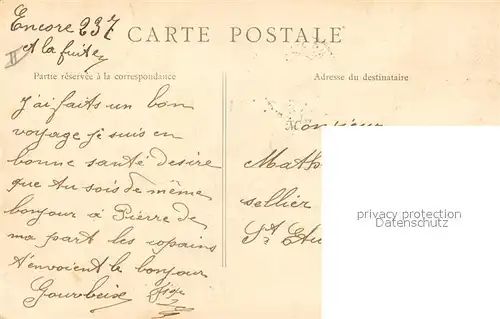 Encore 237
et la fuite
II
CARTE POSTALE
Partie réservée à la correspondance
Adresse du destinataire
J'ai faits un bon
voyage je suis en
bonne santé desire
que tu sois de même
bonjour à Pierre de
ma part les copains
t'envoient le bonjour
Gourbeix
Monsieur
Math
sellier
St Etu
privacy protection
Datenschutz